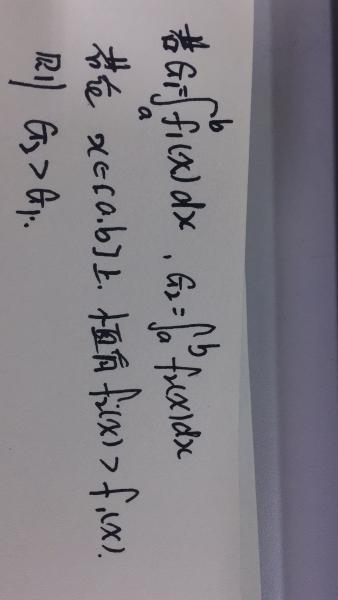 若G₁=∫ₐᵇ f₁(x)dx , G₂=∫ₐᵇ f₂(x)dx
若在 x∈[a,b]上. 恒有 f₂(x)>f₁(x).
则 G₂>G₁.